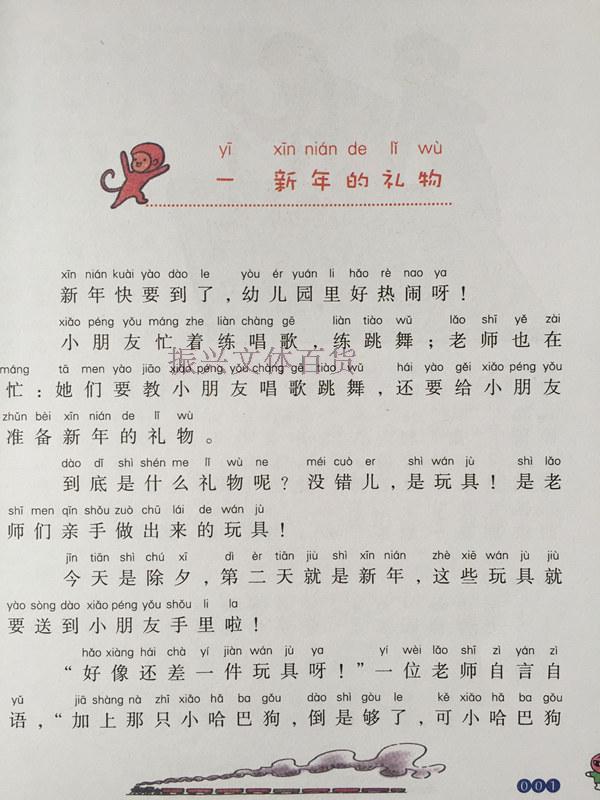 yī xīn nián de lǐ wù
一 新年的礼物
xīn nián kuài yào dào le yòu ér yuán li hǎo rè nao ya
新年快要到了，幼儿园里好热闹呀！
xiǎo péng yǒu máng zhe liàn chàng gē liàn tiào wǔ lǎo shī yě zài
小朋友忙着练唱歌，练跳舞；老师也在
máng tā men yào jiāo xiǎo péng yǒu chàng gē tiào wǔ hái yào gěi xiǎo péng yǒu
忙：她们要教小朋友唱歌跳舞，还要给小朋友
振兴文体百货
zhǔn bèi xīn nián de lǐ wù
准备新年的礼物。
dào dǐ shì shén me lǐ wù ne méi cuò er shì wán jù shì lǎo
到底是什么礼物呢？没错儿，是玩具！是老
shī men qīn shǒu zuò chū lái de wán jù
师们亲手做出来的玩具！
jīn tiān shì chú xī dì èr tiān jiù shì xīn nián zhè xiē wán jù jiù
今天是除夕，第二天就是新年，这些玩具就
yào sòng dào xiǎo péng yǒu shǒu li la
要送到小朋友手里啦！
hǎo xiàng hái chà yí jiàn wán jù ya yí wèi lǎo shī zì yán zì
“好像还差一件玩具呀！”一位老师自言自
yǔ jiā shàng nà zhī xiǎo hǎ ba gǒu dào shì gòu le kě xiǎo hǎ ba gǒu
语，“加上那只小哈巴狗，倒是够了，可小哈巴狗
001